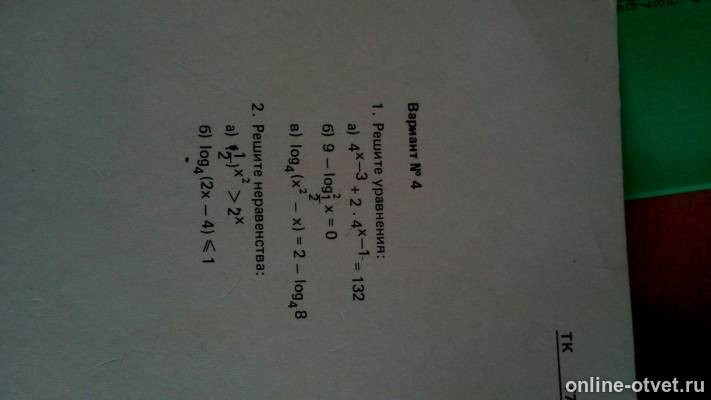 Вариант № 4
1. Решите уравнения:
а) 4^{x−3} + 2 · 4^{x−1} = 132
б) 9 − log²_{1/2} x = 0
в) log₄(x² − x) = 2 − log₄8
2. Решите неравенства:
а) (1/2)^{x²} > 2^x
б) log₄(2x − 4) ⩽ 1
ТК
online-otvet.ru